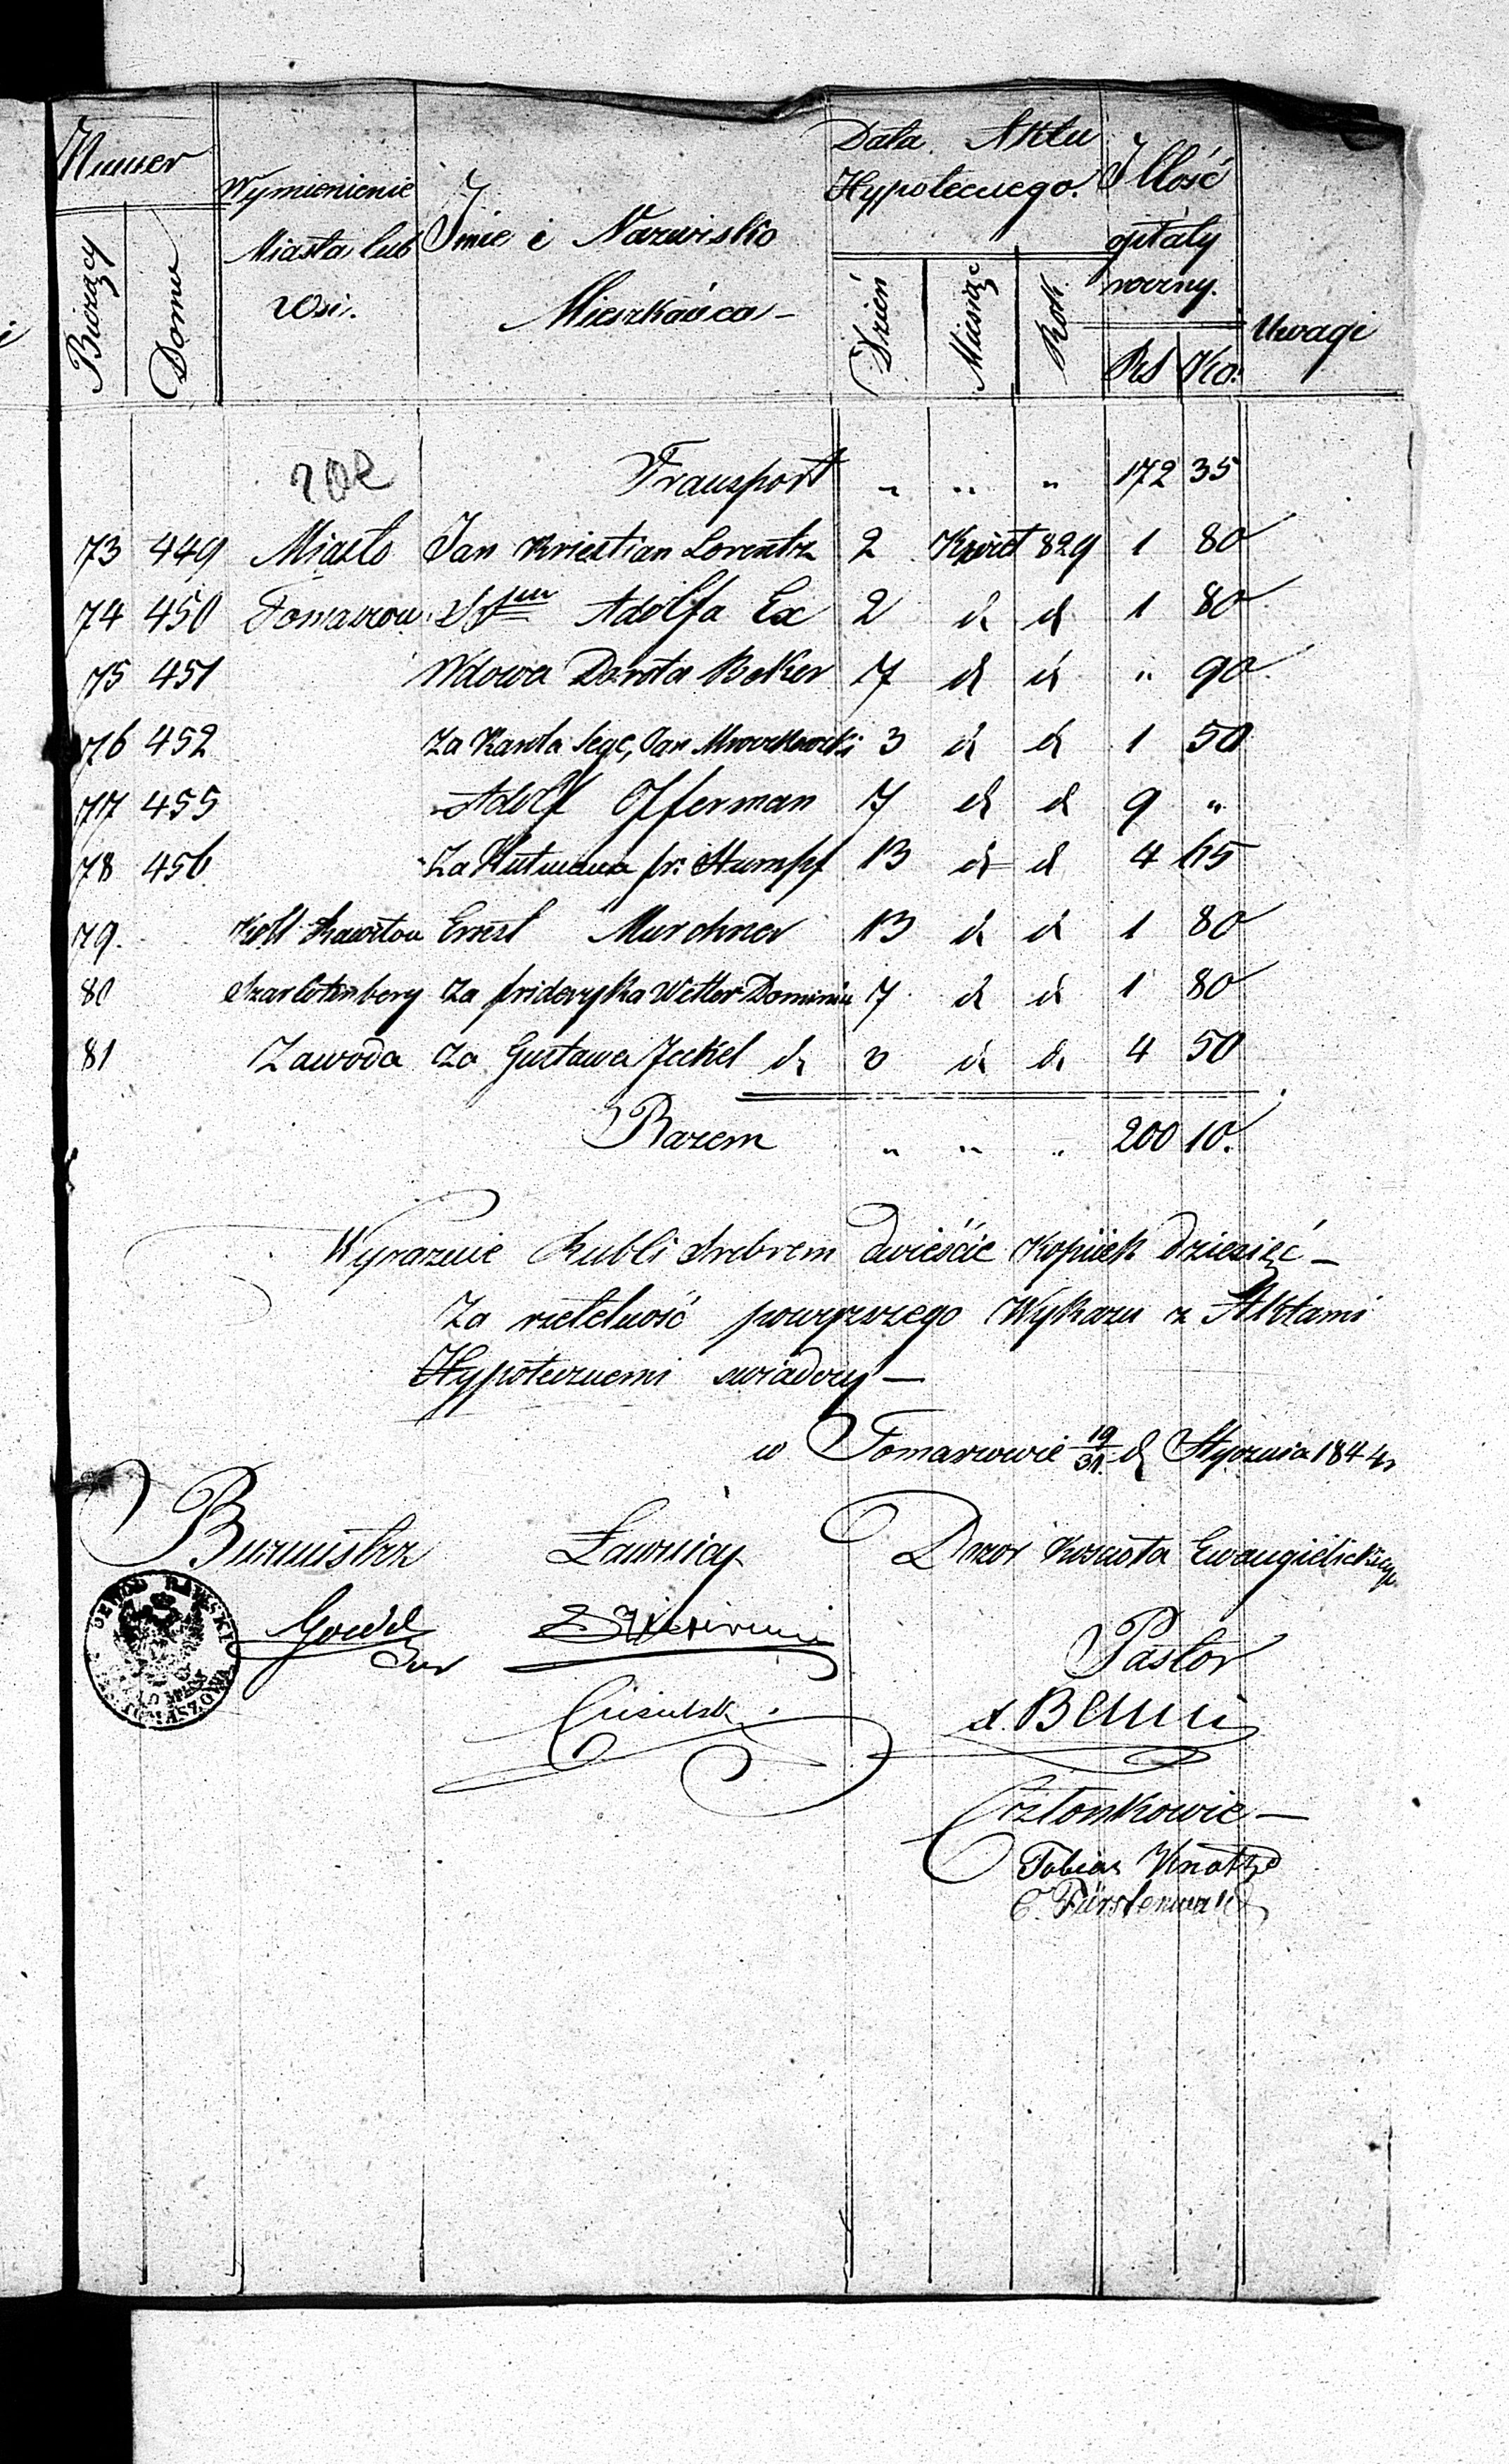 Numer
Bieżący
Domu
Wymienienie
Miasta lub
Wsi.
Imie i Nazwisko
Mieszkańca –
Data Aktu
Hypotecznego.
Dzień
Miesiąc
Rok
Illość
opłaty
roczny.
RS Ko:
Uwagi
Transport " " " 172 35
73 449 Miasto Jan Kriestian Lorentz 2 Kwiet 829 1 80
74 450 Tomaszow Adolfa Ex 2 d d 1 80
75 451 Wdowa Dorota Beker 7 d d " 90
76 452 Za Karola Jan Mroczkowski 3 d d 1 50
77 455 Adolf Offerman 7 d d 9 "
78 456 Za fr: Stumpf 13 d d 4 65
79. Ernest Murchner 13 d d 1 80
80 Szarlotenberg Za frideryka Wetter Dominiu 7 d d 1 80
81 Zawoda Za Gustawa Jeckel d 3 d d 4 50
Razem " " " 200 10.
Wyraznie Rubli Srebrem dwieście Kopiiek dziesięć –
Za rzetelność powyzszego Wykazu z Aktami
Hypotecznemi swiadczy –
w Tomaszowie 19/31. d Stycznia 1844 r
Burmistrz Ławnicy Dozor Kosciola Ewangielickiego
Pastor
Członkowie –
Tobias Knothe
E. Fürstenwald